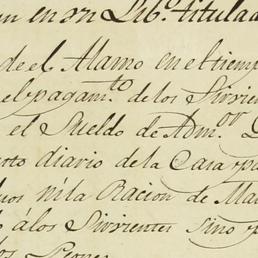 en un Lib.º titulad
de el Alamo en el tiemp
el pagam.to de los Sirvien
el Sueldo de Adm.or
to diario de la Casa pa
nila Racion de Ma
álos Sirvientes sino p